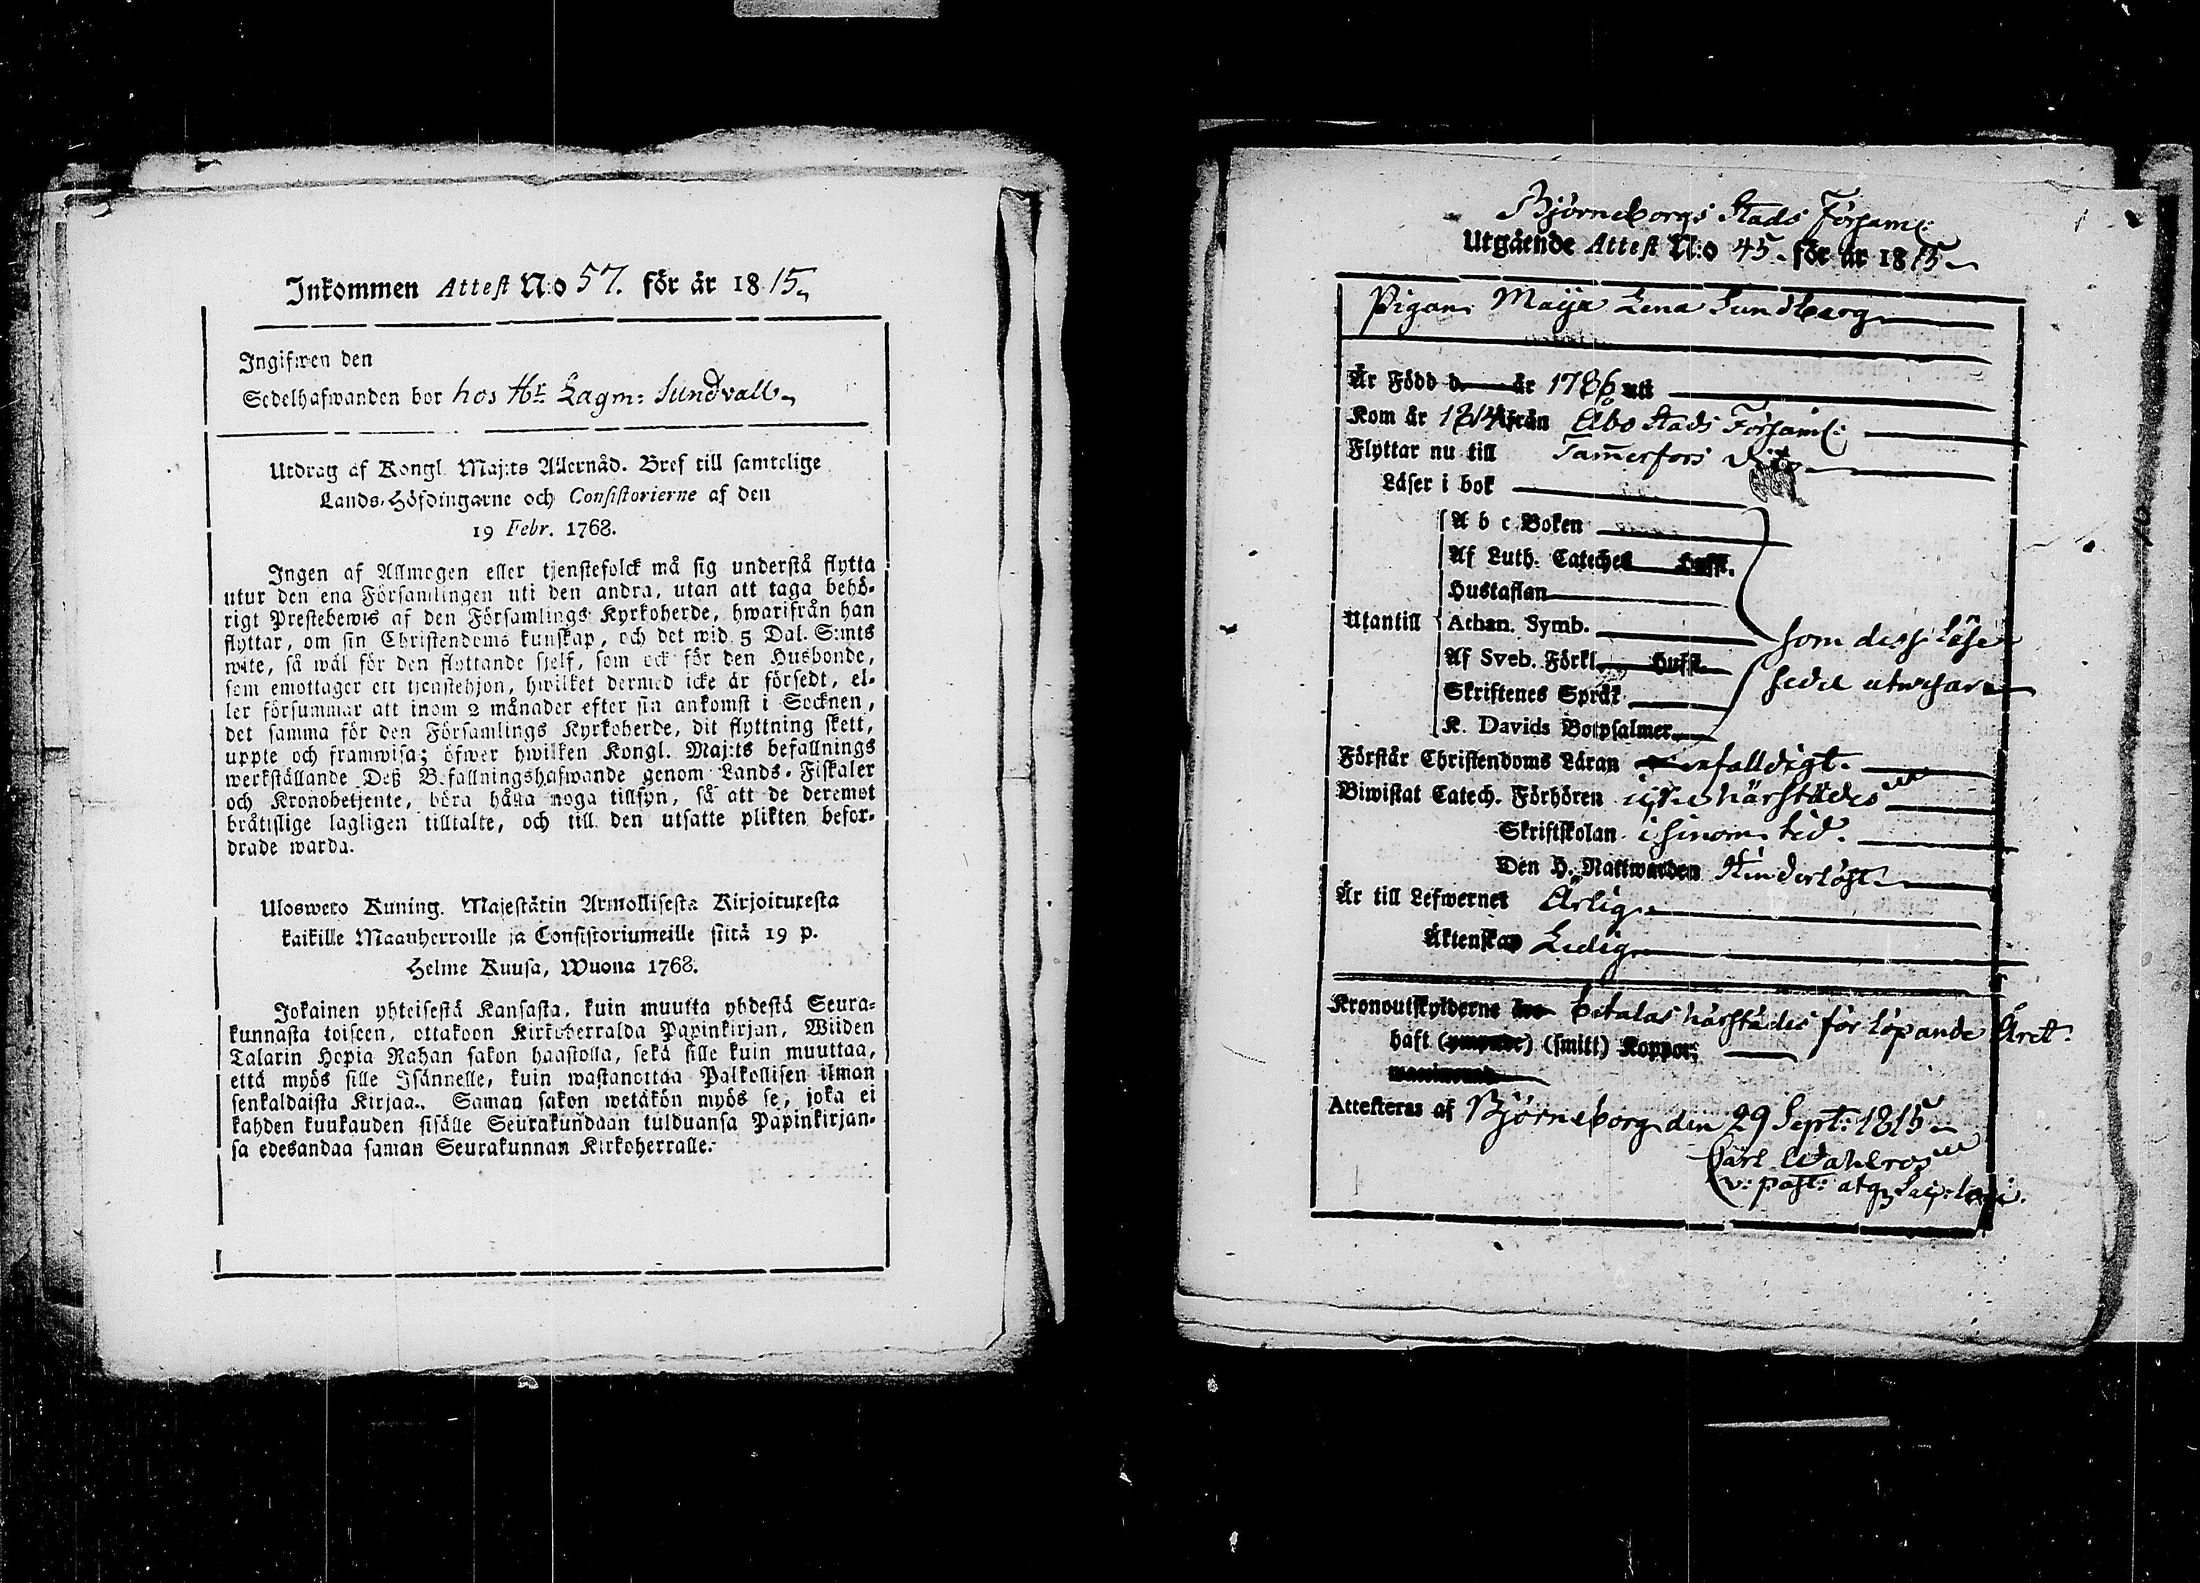 Inkommen Attest N:o 57. för år 1815.
Ingifwen den
Sedelhafwanden bor hos Hr Lagm: Sundvall
Utdrag af Kongl. Maj:ts Allernåd. Bref till samtelige
Lands-Höfdingarne och Consistorierne af den
19 Febr. 1768.
Ingen af Allmogen eller tjenstefolck må sig understå flytta
utur den ena Församlingen uti den andra, utan att taga behö-
rigt Prestebewis af den Församlings Kyrkoherde, hwarifrån han
flyttar, om sin Christendoms kunskap, och det wid 5 Dal. S:mts
wite, så wäl för den flyttande sjelf, som ock för den Husbonde,
som emottager ett tjenstehjon, hwilket dermed icke är försedt, el-
ler försummar att inom 2 månader efter sin ankomst i Socknen,
det samma för den Församlings Kyrkoherde, dit flyttning skett,
uppte och framwisa; öfwer hwilken Kongl. Maj:ts befallnings
werkställande Deß Befallningshafwande genom Lands-Fiskaler
och Kronobetjente, böra hålla noga tillsyn, så att de deremot
bråtislige lagligen tilltalte, och till den utsatte plikten befor-
drade warda.
Ulosweto Kuning. Majestätin Armollisesta Kirjoituxesta
kaikille Maanherroille ja Consistoriumeille siitä 19 p.
Helme Kuusa, Wuona 1768.
Jokainen yhteisestä Kansasta, kuin muutta yhdestä Seura-
kunnasta toiseen, ottakoon Kirkoherralda Papinkirjan, Wiiden
Talarin Hopia Rahan sakon haastolla, sekä sille kuin muuttaa,
että myös sille Isännelle, kuin wastanottaa Palkollisen ilman
senkaldaista Kirjaa. Saman sakon wetäkön myös se, joka ei
kahden kuukauden sisälle Seurakundaan tulduansa Papinkirjan-
sa edesandaa saman Seurakunnan Kirkoherralle.
Björneborgs Stads FörSaml:
Utgående Attest N:o 45. för år 1815
Pigan Maija Lena Sundberg
Är Född d. år 1786 uti
Kom år 1814 från Åbo Stads Församl:
Flyttar nu till Tammerfors d:to
Läser i bok
A b c Boken
Af Luth. Cateches Hufst.
Hustaflan
Utantill Athan. Symb. som dess Läse
Af Sveb. Förkl. Hufst.
Skriftenes Språk sedel utwisar
K. Davids Botpsalmer
Förstår Christendoms Läran enfalldigt.
Biwistat Catech. Förhören icke härstädes
Skriftskolan i sinom tid.
Den H. Nattwarden Hinderlöst
Är till Lefwernet Ärlig
Äktenskap Ledig
Kronoutskylderne betalas härstädes för löpande Året.
haft (ympade) (smitt) Koppor,
Attesteras af Björneborg den 29 Sept: 1815
Carl Wahlroos
v: past: